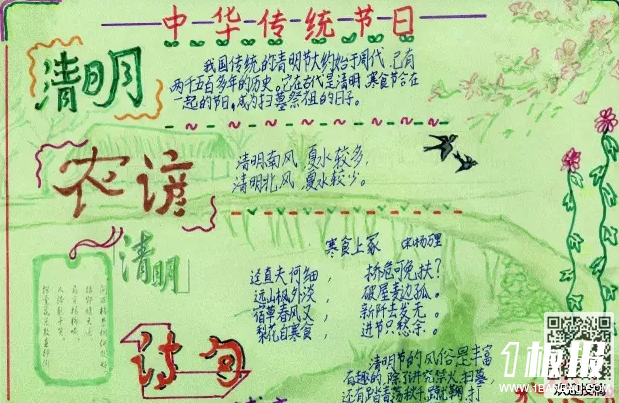 中华传统节日
清明
我国传统的清明节大约始于周代，已有
两千五百多年的历史。它在古代是清明、寒食节合在
一起的节日，成为扫墓祭祖的日子。
农谚
清明南风，夏水较多，
清明北风，夏水较少。
清明
寒食上冢 宋杨万里
迳直夫何细， 桥危可免扶？
远山枫外淡， 破屋麦边孤。
宿草春风又， 新阡去岁无。
梨花自寒食， 进节只愁余。
诗句
清明节的风俗是丰富
有趣的，除了讲究禁火、扫墓
还有踏青、荡秋千、蹴鞠、打
1板报
WWW.1BANBAO.COM
欢迎投稿